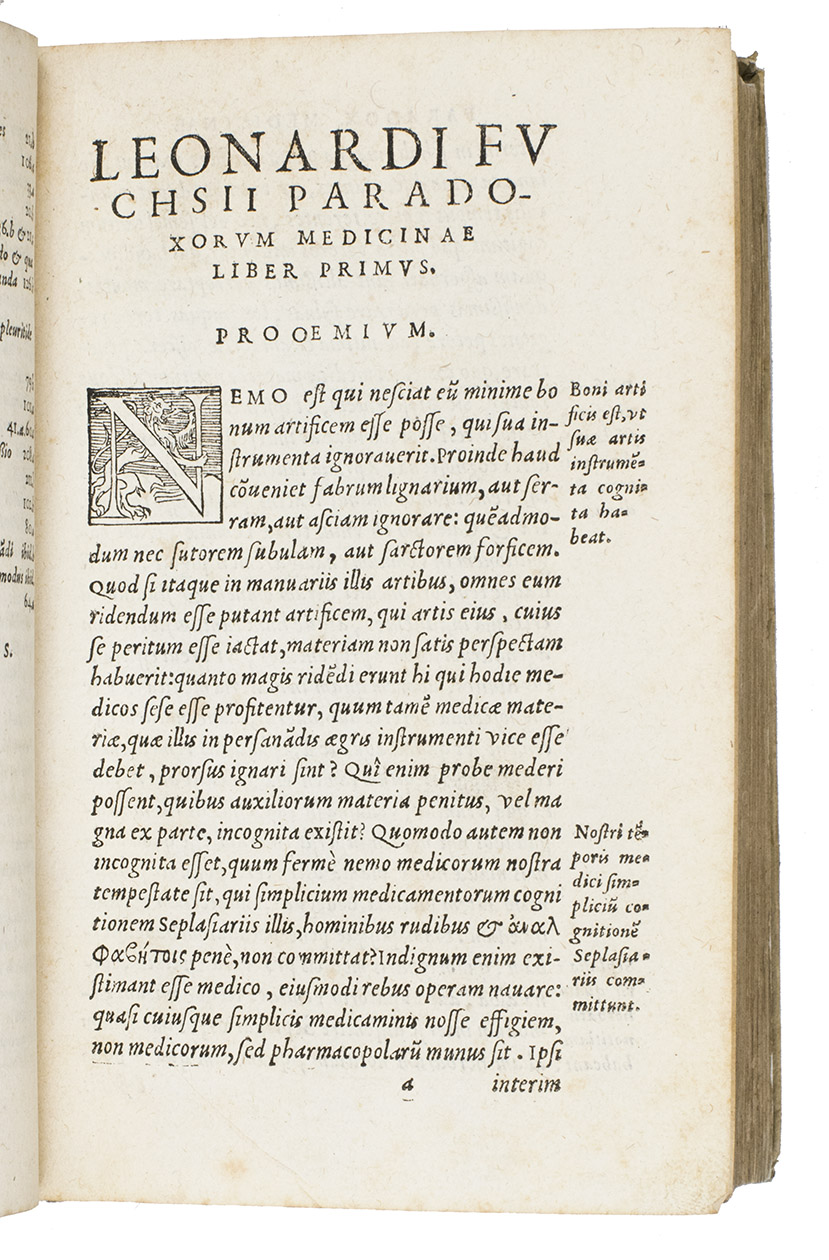 es 21.b
108.
33.a
21.
6.b & 21.
do & qua
nda 126.
pleuritide
79.
101.
41.a.60.
sio 208.
21.
101.
80.
ādi ibid.
modus ibid.
64.a
S.
LEONARDI FV
CHSII PARADO-
XORVM MEDICINAE
LIBER PRIMVS.
PROOEMIVM.
NEMO est qui nesciat eū minime bo
num artificem esse posse, qui sua in-
strumenta ignorauerit. Proinde haud
cōueniet fabrum lignarium, aut ser-
ram, aut asciam ignorare: quēadmo-
dum nec sutorem subulam, aut sarctorem forficem.
Quod si itaque in manuariis illis artibus, omnes eum
ridendum esse putant artificem, qui artis eius, cuius
se peritum esse iactat, materiam non satis perspectam
habuerit: quanto magis ridēdi erunt hi qui hodie me-
dicos sese esse profitentur, quum tamē medicæ mate-
riæ, quæ illis in persanādis ægris instrumenti vice esse
debet, prorsus ignari sint? Quî enim probe mederi
possent, quibus auxiliorum materia penitus, vel ma
gna ex parte, incognita existit? Quomodo autem non
incognita esset, quum fermè nemo medicorum nostra
tempestate sit, qui simplicium medicamentorum cogni
tionem Seplasiariis illis, hominibus rudibus & ἀναλ
φαβήτοις penè, non committat? Indignum enim exi-
stimant esse medico, eiusmodi rebus operam nauare:
quasi cuiusque simplicis medicaminis nosse effigiem,
non medicorum, sed pharmacopolarū munus sit. Ipsi
a interim
Boni arti
ficis est, vt
suæ artis
instrumē-
ta cogni-
ta ha-
beat.
Nostri tē-
poris me-
dici sim-
pliciū co-
gnitionē
Seplasia-
riis com-
mittunt.